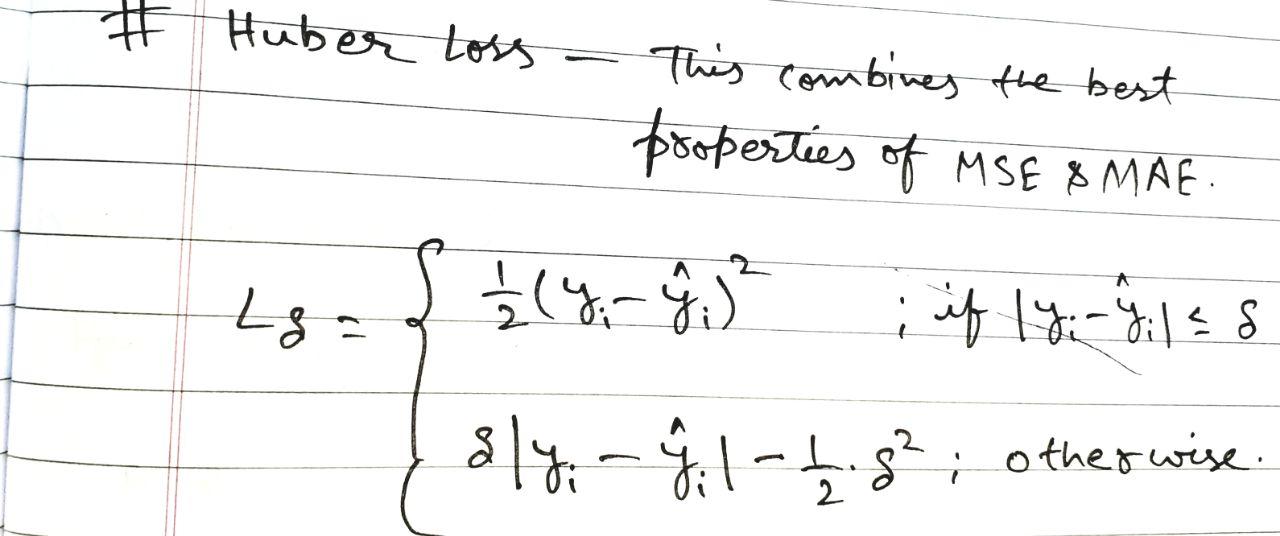 # Huber Loss — This combines the best
properties of MSE & MAE.
Lδ = { ½(yᵢ - ŷᵢ)² ; if |yᵢ - ŷᵢ| ≤ δ
δ|yᵢ - ŷᵢ| - ½.δ² ; otherwise.